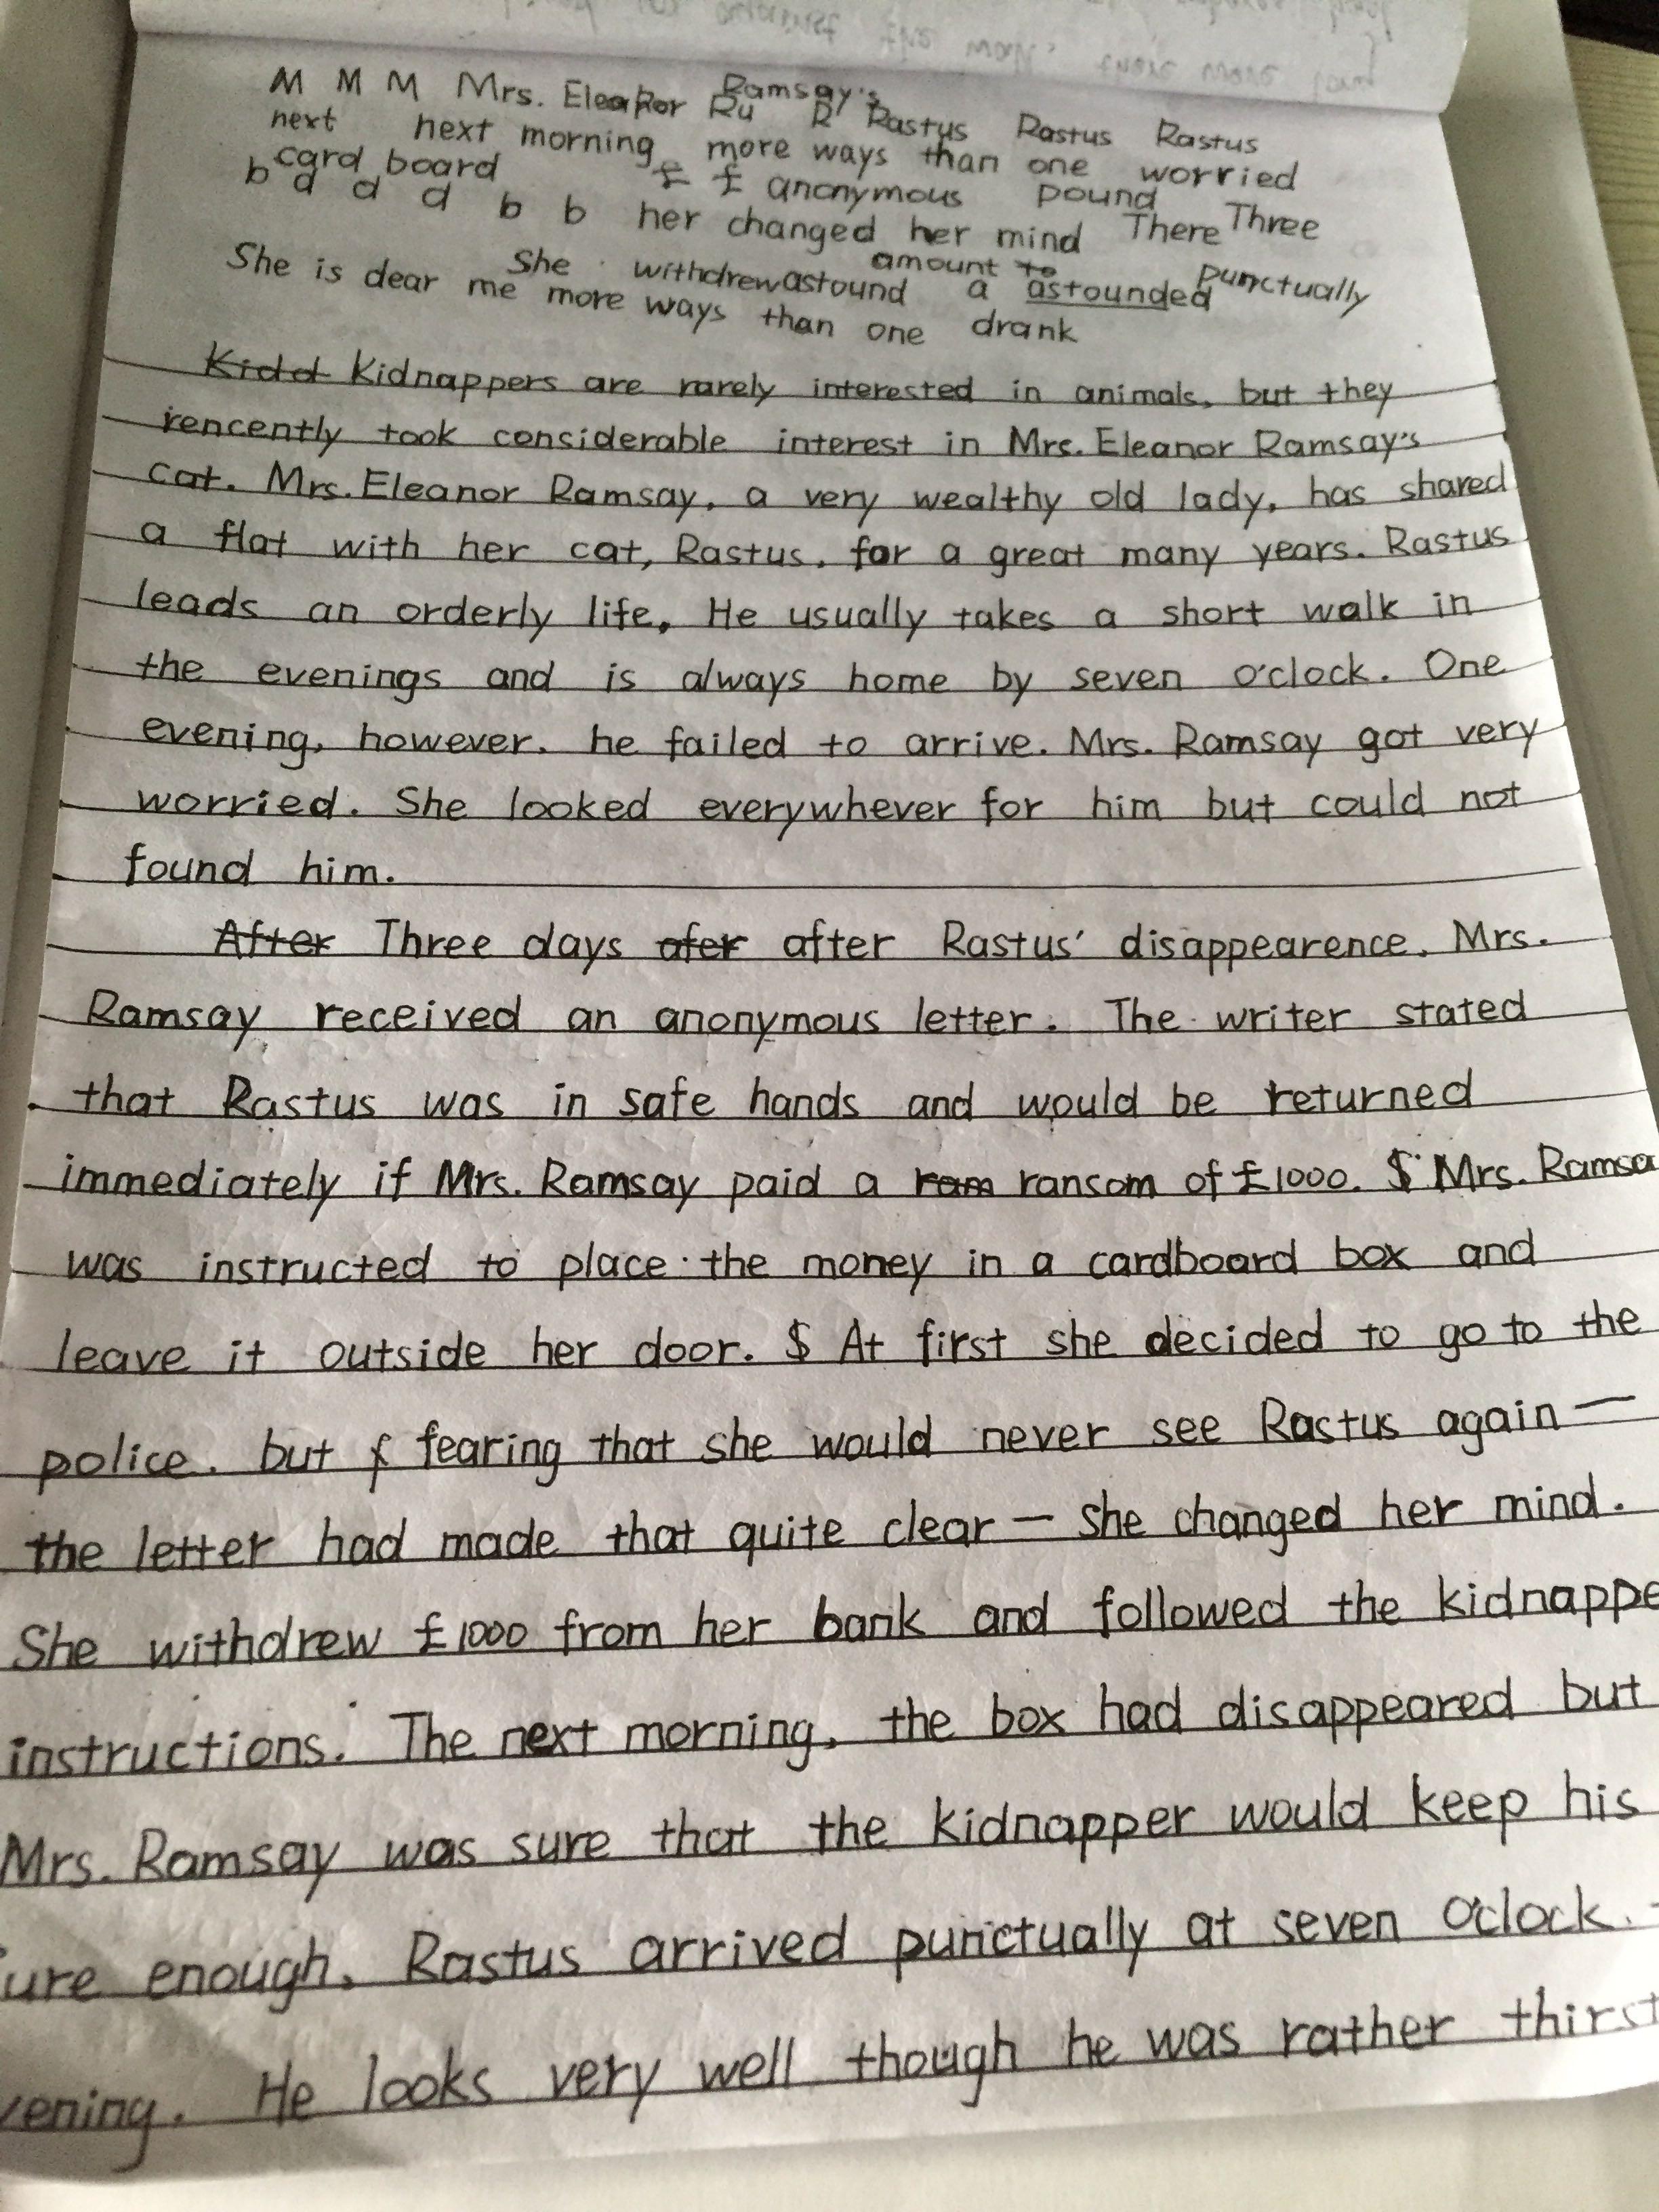 M M M Mrs. Eleanor Ru Ramsay's R Rastus Rastus Rastus
next next morning more ways than one worried
card board £ £ anonymous pound
b d d d b b her changed her mind There Three
She withdrew astound amount to a astounded punctually
She is dear me more ways than one drank
Kidd Kidnappers are rarely interested in animals, but they
rencently took considerable interest in Mrs. Eleanor Ramsay's
cat. Mrs. Eleanor Ramsay, a very wealthy old lady, has shared
a flat with her cat, Rastus, for a great many years. Rastus
leads an orderly life. He usually takes a short walk in
the evenings and is always home by seven o'clock. One
evening, however, he failed to arrive. Mrs. Ramsay got very
worried. She looked everywhever for him but could not
found him.
After Three days afer after Rastus' disappearence, Mrs.
Ramsay received an anonymous letter. The writer stated
that Rastus was in safe hands and would be returned
immediately if Mrs. Ramsay paid a ram ransom of £1000. $ Mrs. Ramsa
was instructed to place the money in a cardboard box and
leave it outside her door. $ At first she decided to go to the
police, but f fearing that she would never see Rastus again —
the letter had made that quite clear — she changed her mind.
She withdrew £1000 from her bank and followed the kidnappe
instructions. The next morning, the box had disappeared but
Mrs. Ramsay was sure that the kidnapper would keep his
ure enough, Rastus arrived punctually at seven o'clock.
vening. He looks very well though he was rather thirst